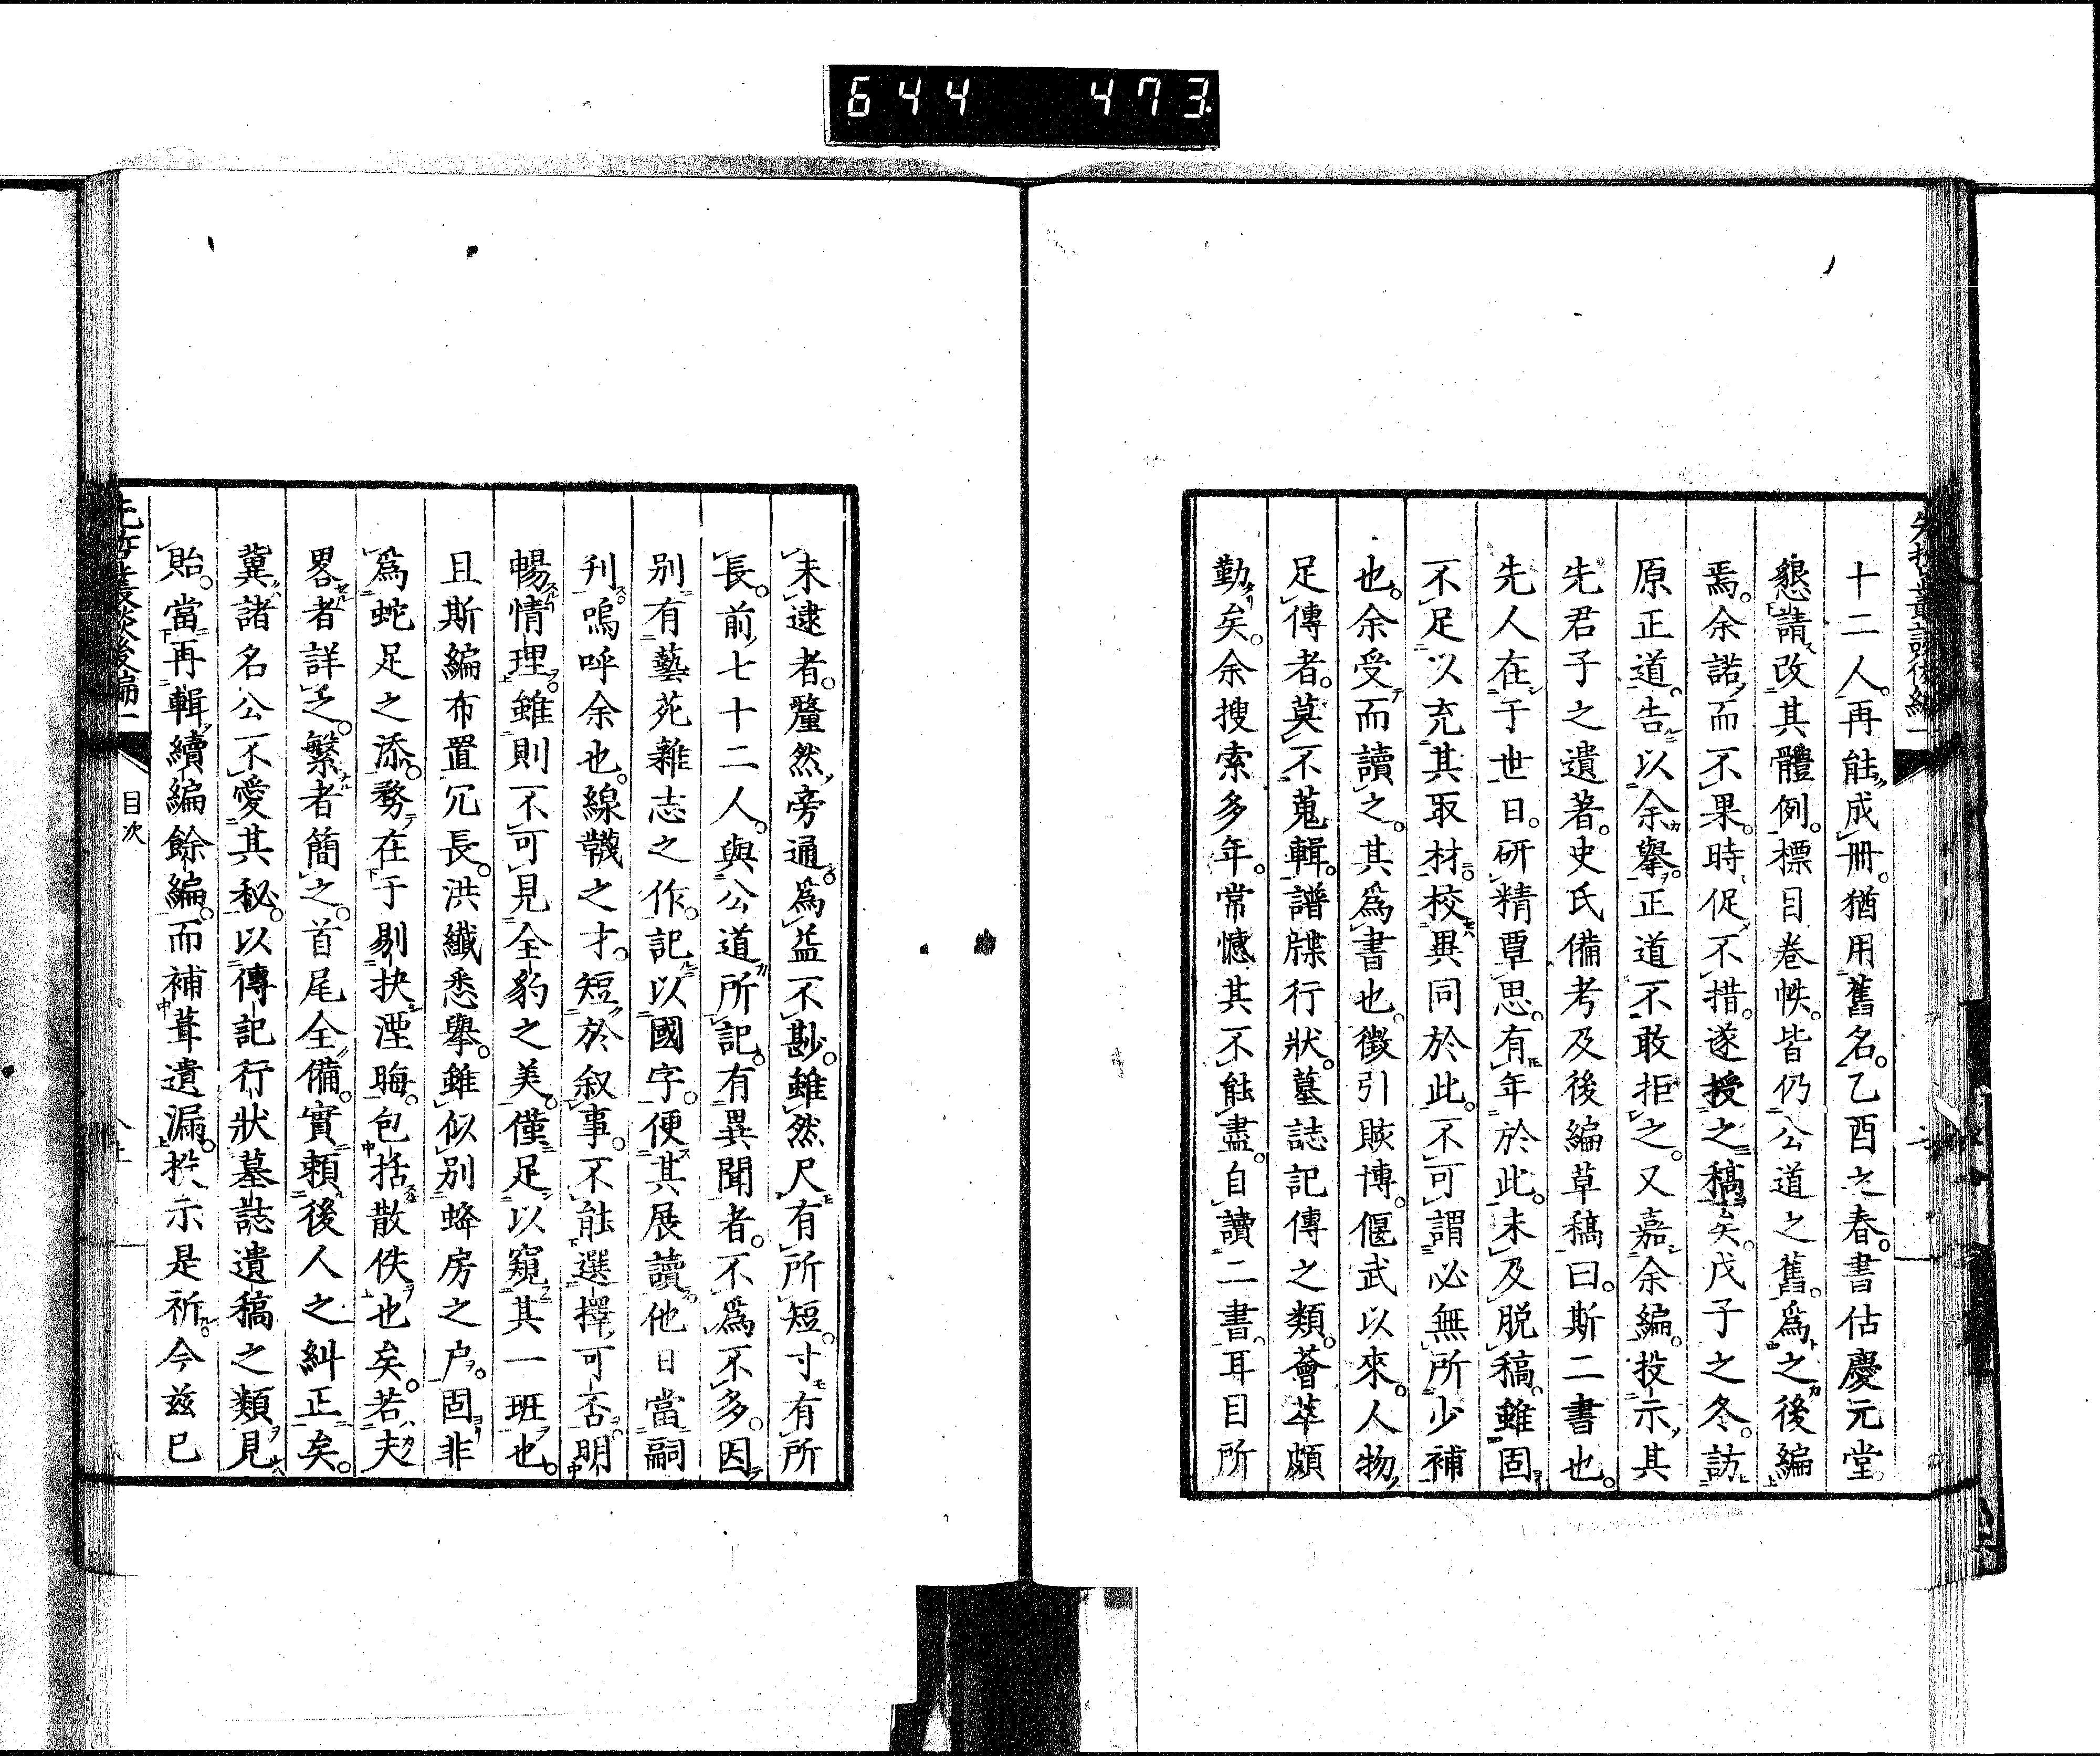 644 473
先哲叢談後編一
十二人。再能成冊。猶用舊名。乙酉之春。書估慶元堂
懇請改其體例。標目卷帙。皆仍公道之舊。爲之後編
焉。余諾而不果。時促不措。遂授之稿矣。戊子之冬。訪
原正道。告以余擧。正道不敢拒之。又嘉余編。投示其
先君子之遺著。史氏備考及後編草稿曰。斯二書也。
先人在于世日。研精覃思。有年於此。未及脱稿。雖固
不足以充其取材。校異同於此。不可謂必無所少補
也。余受而讀之。其爲書也。徵引賅博。偃武以來。人物
足傳者。莫不蒐輯。譜牒行狀。墓誌記傳之類。薈萃頗
勤矣。余搜索多年。常憾其不能盡。自讀二書。耳目所
未逮者。釐然旁通。爲益不尠。雖然尺有所短。寸有所
長。前七十二人。與公道所記。有異聞者。不爲不多。因
別有藝苑雜志之作。記以國字。便其展讀。他日當嗣
刊。嗚呼余也。線韈之才。短於叙事。不能選擇可否。明
暢情理。雖則不可見全豹之美。僅足以窺其一班也。
且斯編布置冗長。洪纖悉擧。雖似別蜂房之戶。固非
爲蛇足之添。務在于剔抉湮晦。包括散佚也矣。若夫
畧者詳之。繁者簡之。首尾全備。實賴後人之糾正矣。
冀諸名公不愛其秘。以傳記行狀墓誌遺稿之類見
貽。當再輯續編餘編。而補葺遺漏。投示是祈。今茲已
先哲叢談後編一 目次